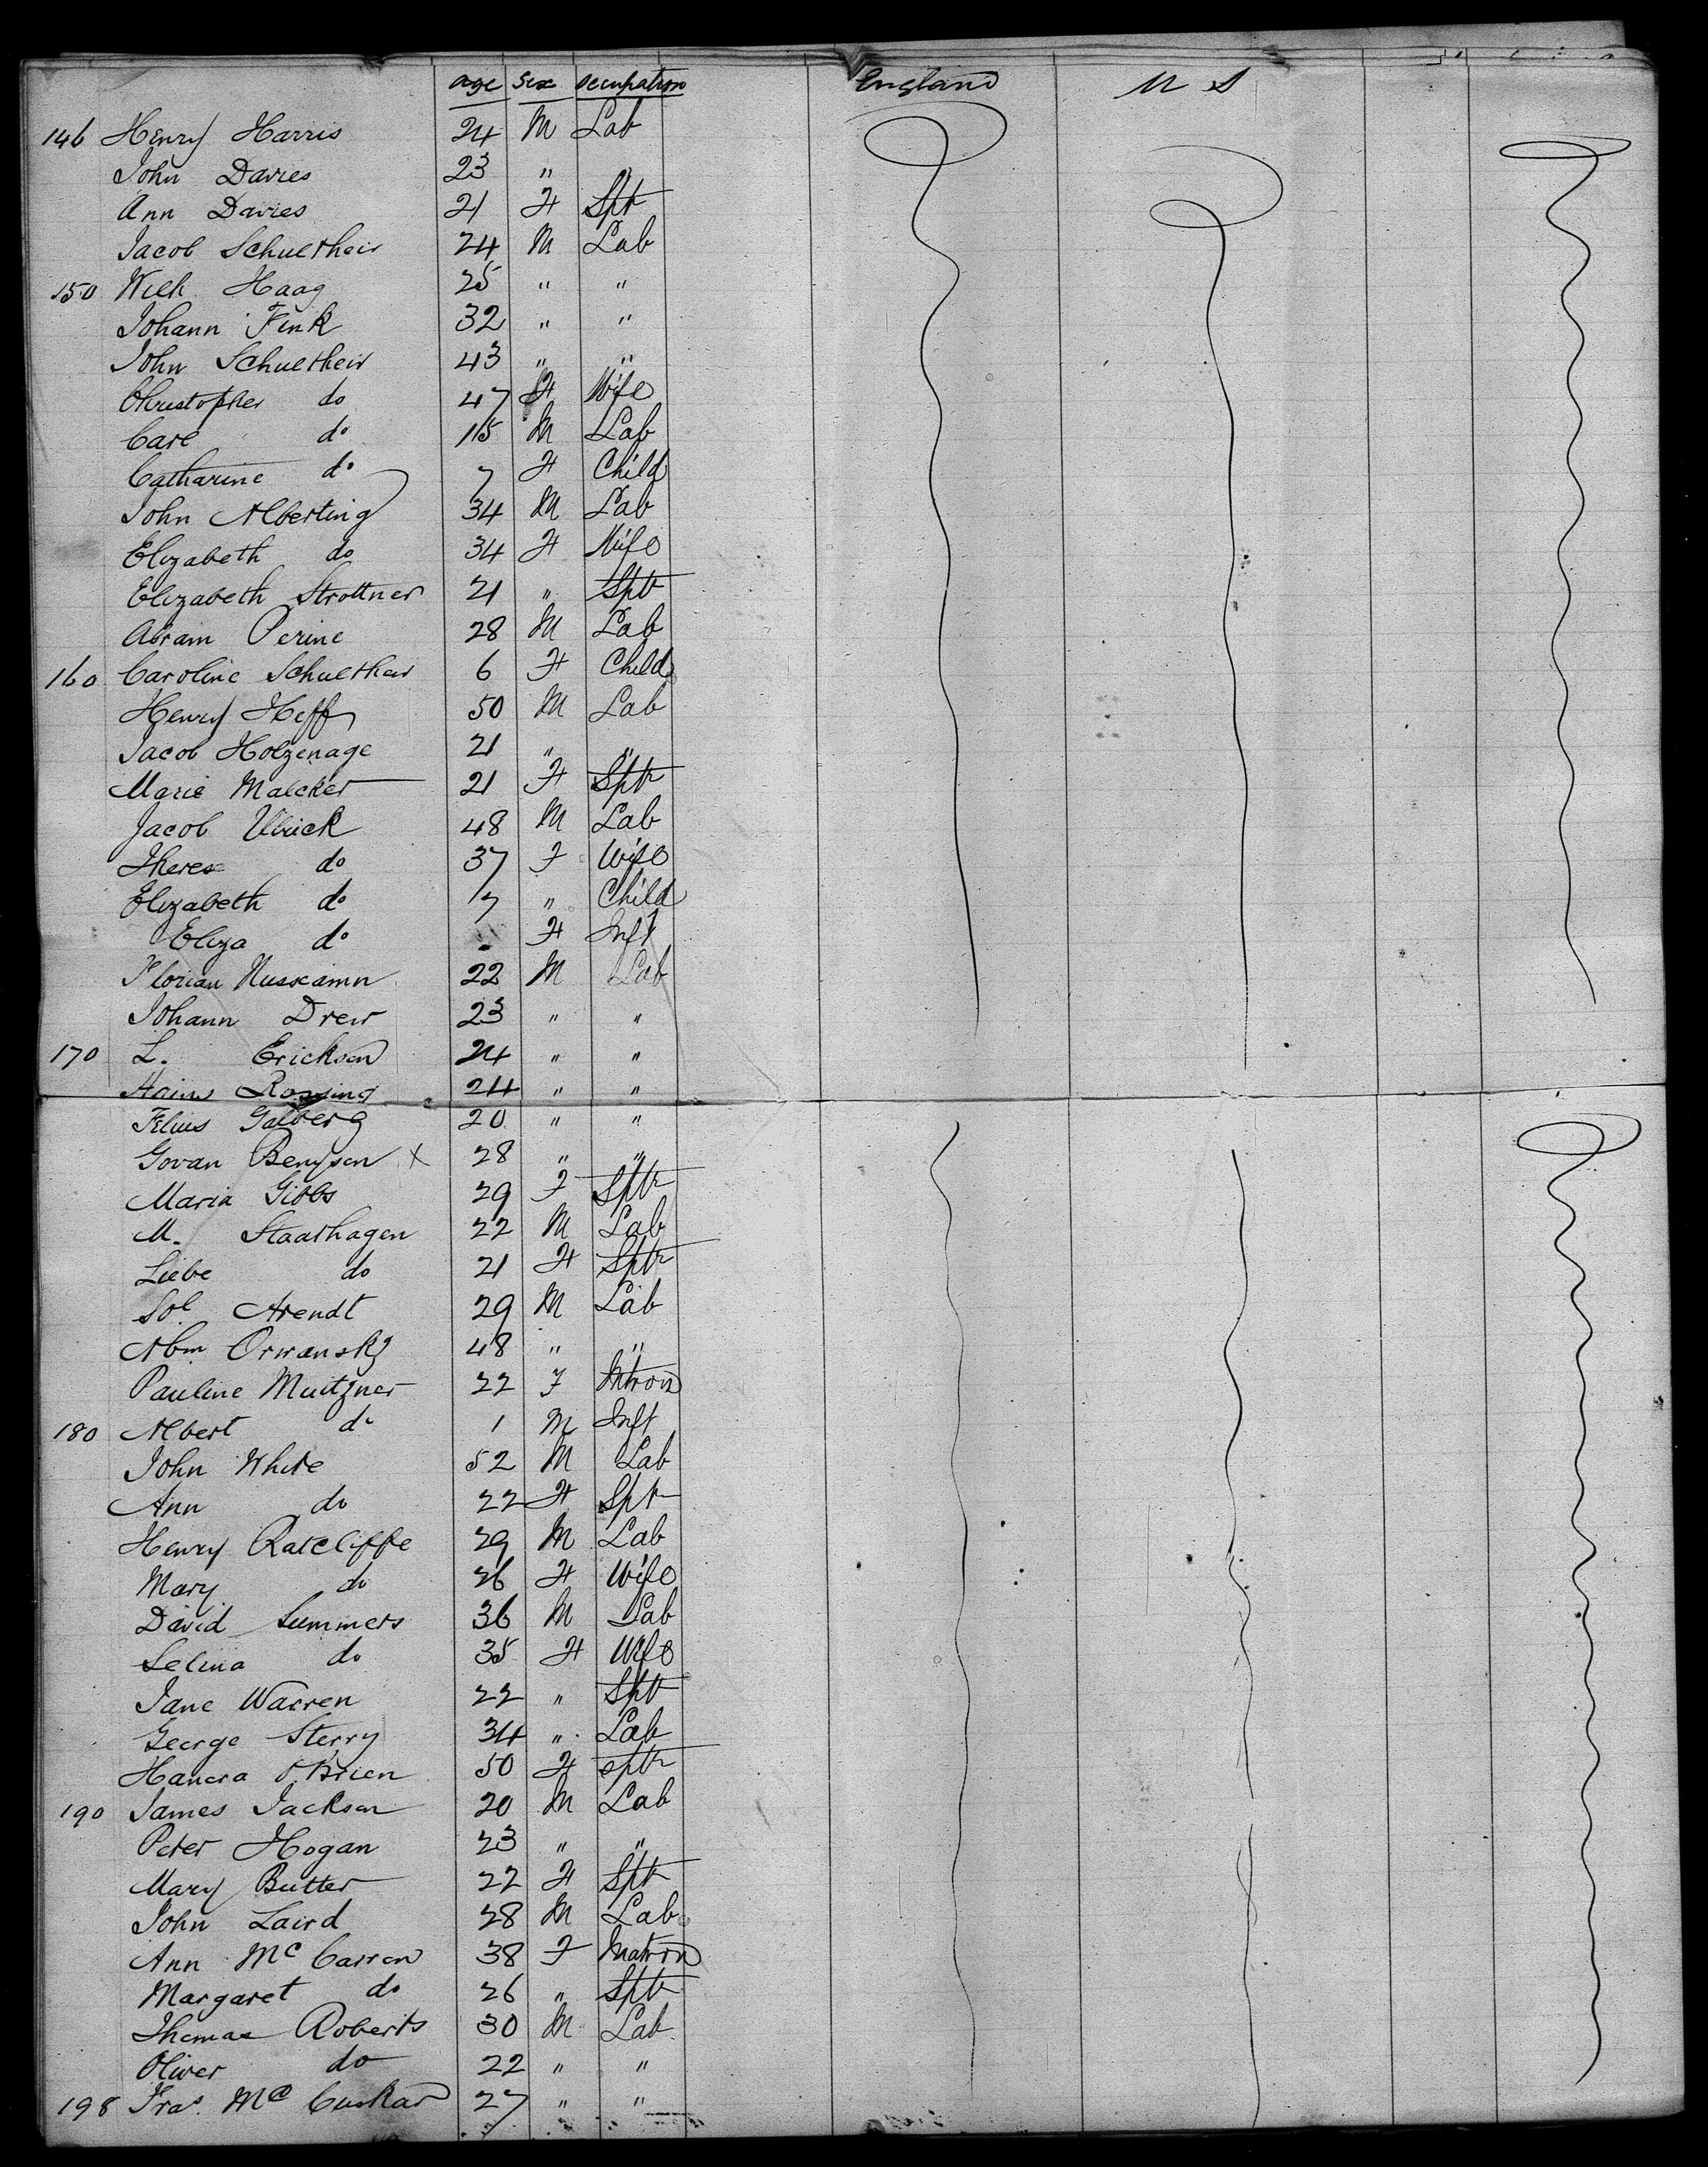 age Sex Occupation England U S
146 Henry Harris 24 M Lab
John Davies 23 "
Ann Davies 21 F Sptr
Jacob Schultheis 24 M Lab
150 Wilh. Haag 25 " "
Johann Fink 32 " "
John Schultheis 43 " "
Christopher do 47 F Wife
Carl do 15 M Lab
Catharine do 7 F Child
John Alberting 34 M Lab
Elizabeth do 34 F Wife
Elizabeth Strottner 21 " Sptr
Abram Perine 28 M Lab
160 Caroline Schultheis 6 F Child
Henry Heff 50 M Lab
Jacob Holzenage 21 " "
Marie Malcker 21 F Sptr
Jacob Ulrick 48 M Lab
Theres do 37 F Wife
Elizabeth do 7 " Child
Eliza do F Inft
Florian Nusscamn 22 M Lab
Johann Drew 23 " "
170 L. Erickson 24 " "
Hains 24 " "
Galberg 20 " "
Govan Bengson X 28 " "
Maria Gibbs 29 F Sptr
M. Staathagen 22 M Lab
Liebe do 21 F Sptr
Sol. Arendt 29 M Lab
Abm Orwansky 48 " "
Pauline Muitzner 22 F Matron
180 Albert do 1 M Inft
John White 52 M Lab
Ann do 22 F Sptr
Henry Ratcliffe 29 M Lab
Mary do 26 F Wife
David Summers 36 M Lab
Selina do 35 F Wife
Jane Warren 22 " Sptr
George Sterry 34 " Lab
Hanora O'Brien 50 F Sptr
190 James Jackson 20 M Lab
Peter Hogan 23 " "
Mary Butter 22 F Sptr
John Laird 28 M Lab
Ann McCarren 38 F Matron
Margaret do 26 " Sptr
Thomas Roberts 30 M Lab
Oliver do 22 " "
198 Fras. Mc Cuskar 27 " "